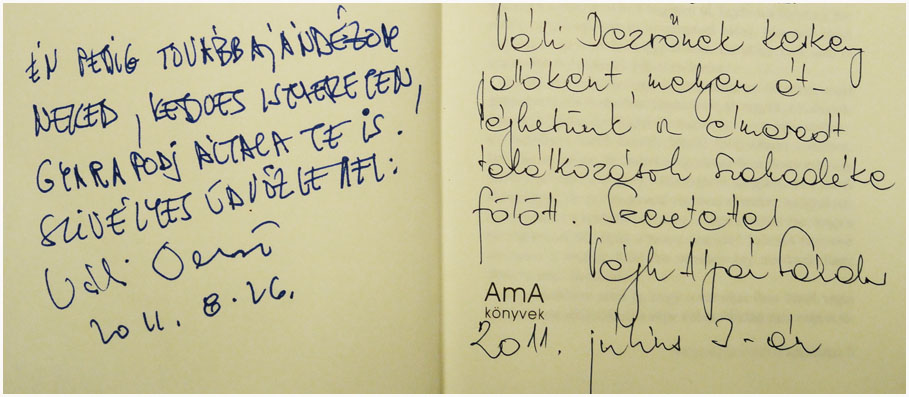 ÉN PEDIG TOVÁBBAJÁNDÉZOM
NEKED, KEDVES ISMERETLEN,
GYARAPODJ ÁLTALA TE IS.
SZIVÉLYES ÜDVÖZLETTEL:
Váli Dezső
2011. 8. 26.
Váli Dezsőnek keskeny
pallóként, melyen át-
léphetünk az elmaradt
találkozások szakadéka
fölött. Szeretettel
Végh Alpár Sándor
AmA
könyvek
2011. július 7-én